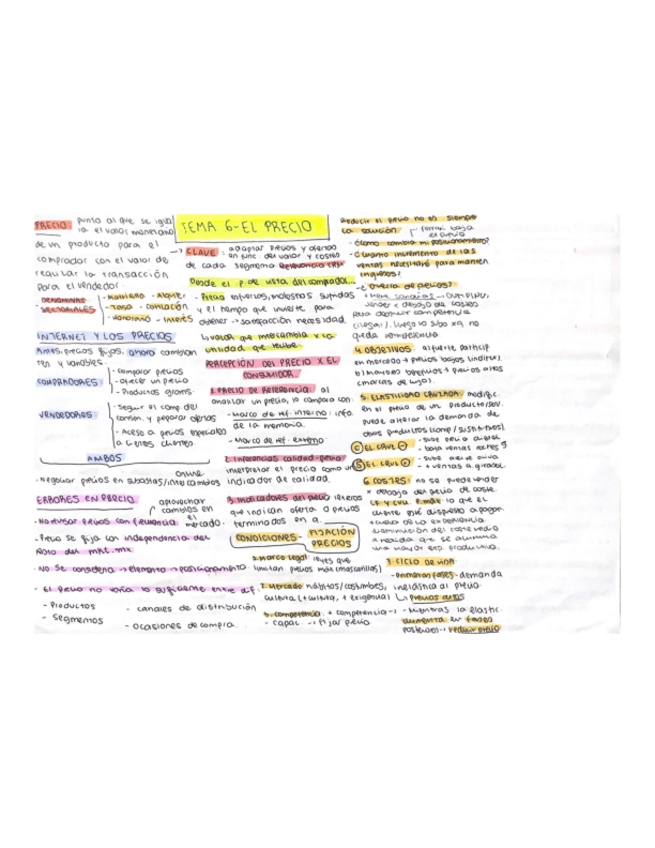 PRECIO: punto al que se igua
la el valor monetario
de un producto para el
comprador con el valor de
realizar la transacción
para el vendedor.
DENOMINAC - Honorario - Alquiler
SECTORIALES - Tasa - comisión
- interés
INTERNET Y LOS PRECIOS
Antes, precios fijos, ahora cambian
tes y variables.
COMPRADORES
- Comparar precios
- ofrecer un precio
- Productos gratis
VENDEDORES
- Seguir el comp. del
consum. y preparar ofertas
- Acceso a precios especiales
a ciertos clientes
AMBOS
online
- Negociar precios en subastas/intercambios
ERRORES EN PRECIO
aprovechar
cambios en
el
mercado.
- No revisar precios con frecuencia
- Precio se fija con independencia del
Resto del mkt. mix
- No se considera → elemento → posicionamiento.
- El precio no varía lo suficiente entre dif.
- Productos - canales de distribución
- Segmentos - ocasiones de compra.
TEMA 6-EL PRECIO
→ CLAVE: adaptar precios y oferta
en func. del valor y costes
de cada segmento
Desde el p. de vista del comprador...
- Precio esfuerzos, molestias sufridas
y el tiempo que invierte para
obtener → satisfacción necesidad.
↳ valor que intercambia x la
utilidad que recibe.
PERCEPCIÓN DEL PRECIO X EL
CONSUMIDOR.
1. PRECIO DE REFERENCIA: al
analizar un precio, lo compara con:
- Marco de ref. interno: info.
de la memoria.
- Marco de ref. externo:
2. Inferencias calidad-precio
interpretar el precio como un
indicador de calidad.
3. Indicadores del precio letreros
que indican oferta o precios
terminados en a...
CONDICIONES - FIJACIÓN
PRECIOS
1. Marco legal: leyes que
limitan precios máx (mascarillas)
2. Mercado hábitos/costumbres,
cultura (+ cultura, + exigencia)
3. competencia: + competencia →
- capac. → fijar precio
Reducir el precio no es siempre
la solución
- ¿Cómo cambia mi posicionamiento?
- ¿Cuánto incremento de las
ventas necesitaré para manten
ingresos?
- ¿Guerra de precios?
vender x debajo de costes
para destruir competencia
(ilegal). Luego lo sube xq no
queda competencia
4. OBJETIVOS: particip.
en mercado → precios bajos
b) mayores beneficios → precios altos
(marcas de lujo).
5. ELASTICIDAD CRUZADA: modific.
en el precio de un producto/serv.
puede alterar la demanda de
otros productos (comp/sustitutivos).
C EL CRUZ - - sube precio
- baja ventas coches
S EL CRUZ + - sube aceite oliva
- + ventas a. girasol.
6. COSTES: no se puede vender
x debajo del precio de coste.
P. máx lo que el
cliente esté dispuesto a pagar.
disminución del coste medio
a medida que se acumula
una mayor exp. productiva.
7. CICLO DE VIDA:
- Primeras fases: demanda
inelástica al precio
↳ Precios altos
- Mientras la elastic.
aumenta en fases
posteriores → reducir precio